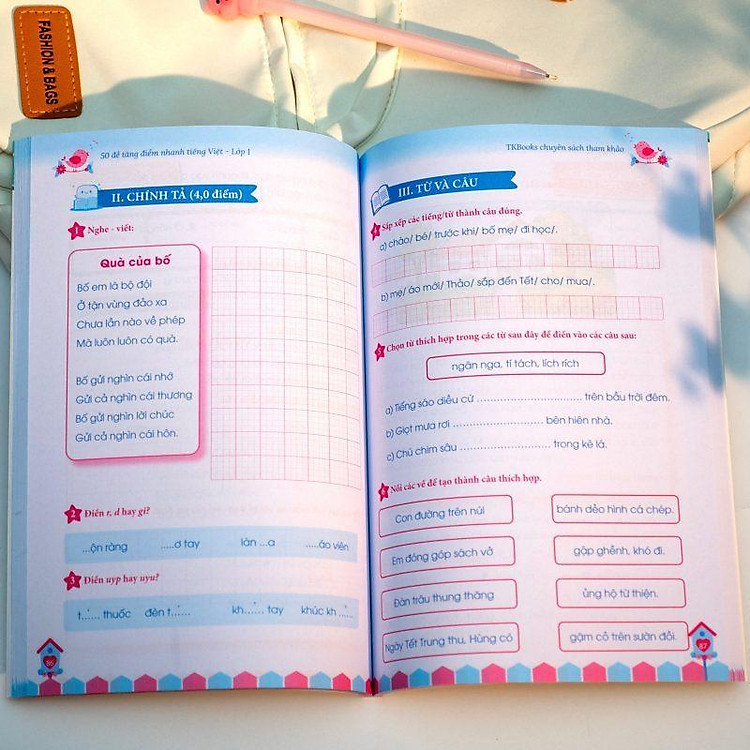 FASHION & BAGS
50 đề tăng điểm nhanh tiếng Việt - Lớp 1
II. CHÍNH TẢ (4,0 điểm)
1 Nghe - viết:
Quà của bố
Bố em là bộ đội
Ở tận vùng đảo xa
Chưa lần nào về phép
Mà luôn luôn có quà.
Bố gửi nghìn cái nhớ
Gửi cả nghìn cái thương
Bố gửi nghìn lời chúc
Gửi cả nghìn cái hôn.
2 Điền r, d hay gi?
...ộn ràng .....ơ tay làn ...a .....áo viên
3 Điền uyp hay uyu?
t...... thuốc đèn t...... kh...... tay khúc kh ......
86
TKBooks chuyên sách tham khảo
III. TỪ VÀ CÂU
4 Sắp xếp các tiếng/từ thành câu đúng.
a) chào/ bé/ trước khi/ bố mẹ/ đi học/.
b) mẹ/ áo mới/ Thảo/ sắp đến Tết/ cho/ mua/.
5 Chọn từ thích hợp trong các từ sau đây để điền vào các câu sau:
ngân nga, tí tách, lích rích
a) Tiếng sáo diều cứ .............................. trên bầu trời đêm.
b) Giọt mưa rơi .............................. bên hiên nhà.
c) Chú chim sâu .............................. trong kẽ lá.
6 Nối các vế để tạo thành câu thích hợp.
Con đường trên núi bánh dẻo hình cá chép.
Em đóng góp sách vở gập ghềnh, khó đi.
Đàn trâu thung thăng ủng hộ từ thiện.
Ngày Tết Trung thu, Hùng có gặm cỏ trên sườn đồi.
87